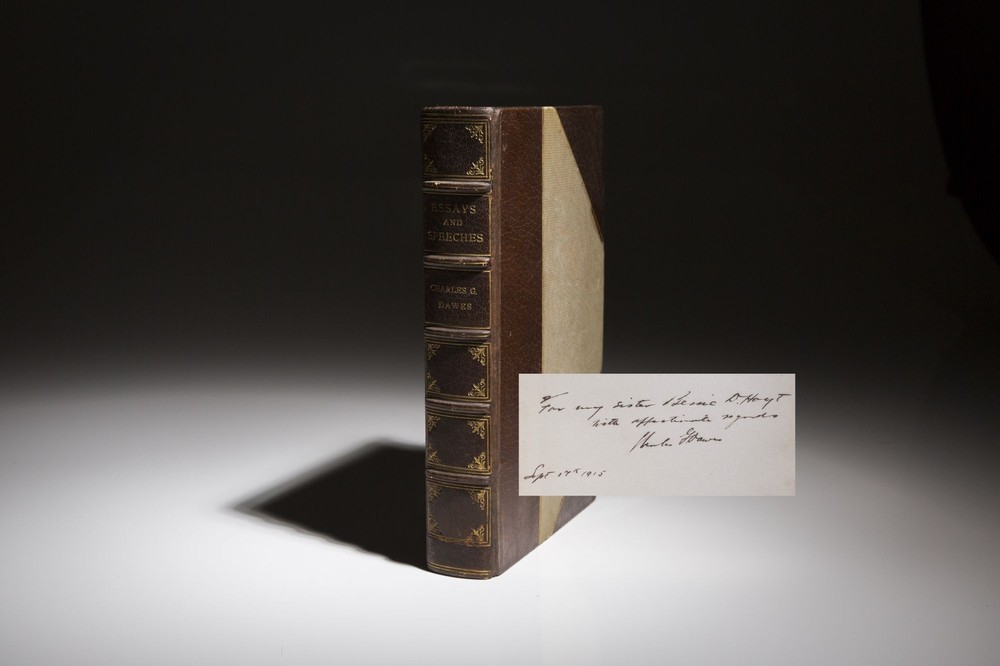 ESSAYS
AND
SPEECHES
CHARLES G.
DAWES
For my sister Bessie D. Hoyt
with affectionate regards
Charles G Dawes
Sept 17th 1915